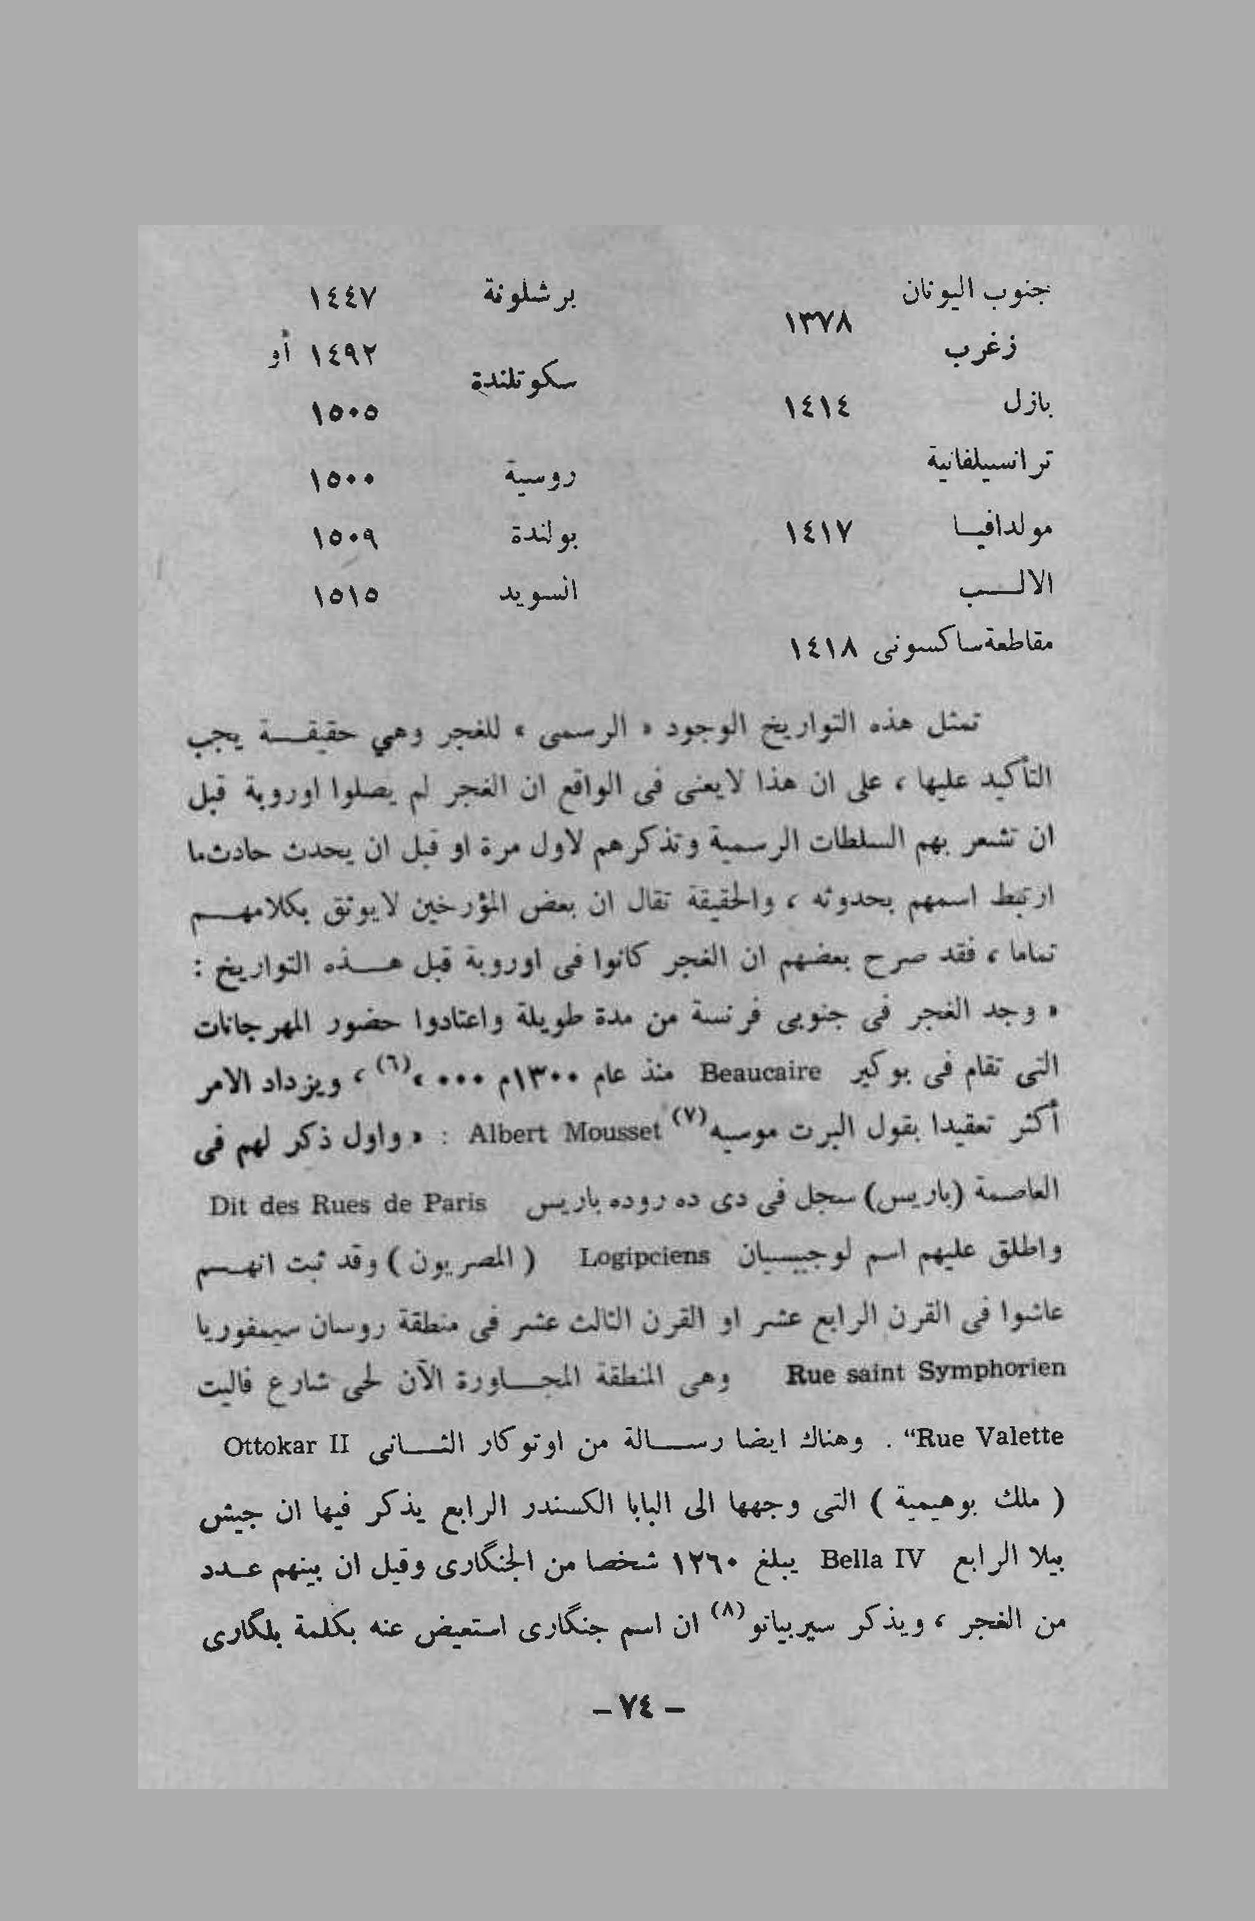 جنوب اليونان
١٣٧٨
زغرب
بازل ١٤١٤
ترانسيلفانية
مولدافيــا ١٤١٧
الالــــب
مقاطعة ساكسونى ١٤١٨
برشلونة ١٤٤٧
١٤٩٢ أو
سكوتلندة
١٥٠٥
روسية ١٥٠٠
بولندة ١٥٠٩
السويد ١٥١٥
تمثل هذه التواريخ الوجود « الرسمى » للغجر وهي حقيقــة يجب
التأكيد عليها ، على ان هذا لايعنى فى الواقع ان الغجر لم يصلوا اوروبة قبل
ان تشعر بهم السلطات الرسمية وتذكرهم لاول مرة او قبل ان يحدث حادث ما
ارتبط اسمهم بحدوثه ، والحقيقة تقال ان بعض المؤرخين لايوثق بكلامهــم
تماما ، فقد صرح بعضهم ان الغجر كانوا فى اوروبة قبل هــذه التواريخ :
« وجد الغجر فى جنوبى فرنسة من مدة طويلة واعتادوا حضور المهرجانات
التى تقام فى بوكير Beaucaire منذ عام ١٣٠٠م ٠٠٠ »(٦) ، ويزداد الامر
أكثر تعقيدا بقول البرت موسيه(٧) Albert Mousset : « واول ذكر لهم فى
العاصمة (باريس) سجل فى دى ده روده باريس Dit des Rues de Paris
واطلق عليهم اسم لوجيبسيان Logipciens ( المصريون ) وقد ثبت انهــم
عاشوا فى القرن الرابع عشر او القرن الثالث عشر فى منطقة روسان سيمفوريا
Rue saint Symphorien وهى المنطقة المجــاورة الآن لحى شارع فاليت
Rue Valette“ . وهناك ايضا رســالة من اوتوكار الثــانى Ottokar II
( ملك بوهيمية ) التى وجهها الى البابا الكسندر الرابع يذكر فيها ان جيش
بيلا الرابع Bella IV يبلغ ١٢٦٠ شخصا من الجنگارى وقيل ان بينهم عــدد
من الغجر ، ويذكر سيربيانو(٨) ان اسم جنگارى استعيض عنه بكلمة بلگارى
– ٧٤ –